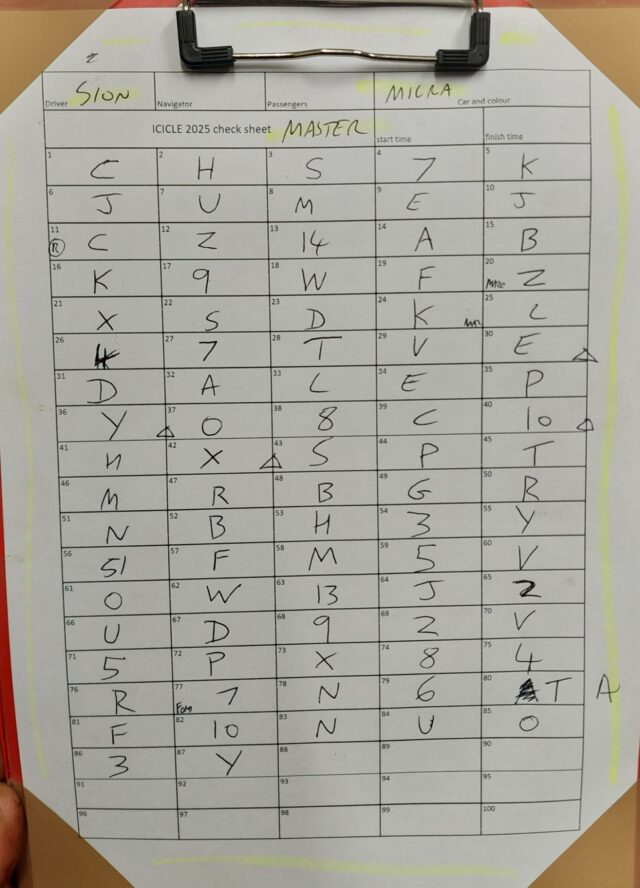 2
SION MICRA
Driver Navigator Passengers Car and colour
ICICLE 2025 check sheet MASTER start time finish time
1 C 2 H 3 S 4 7 5 K
6 J 7 U 8 M 9 E 10 J
11 R C 12 Z 13 14 14 A 15 B
16 K 17 9 18 W 19 F 20 Z
21 X 22 S 23 D 24 K 25 L
26 27 7 28 T 29 V 30 E
31 D 32 A 33 L 34 E 35 P
36 Y 37 O 38 8 39 C 40 10
41 И 42 X 43 S 44 P 45 T
46 M 47 R 48 B 49 G 50 R
51 N 52 B 53 H 54 3 55 Y
56 51 57 F 58 M 59 5 60 V
61 O 62 W 63 13 64 J 65 2
66 U 67 D 68 9 69 2 70 V
71 5 72 P 73 X 74 8 75 4
76 R 77 7 78 N 79 6 80 T A
81 F 82 10 83 N 84 U 85 O
86 3 87 Y 88 89 90
91 92 93 94 95
96 97 98 99 100